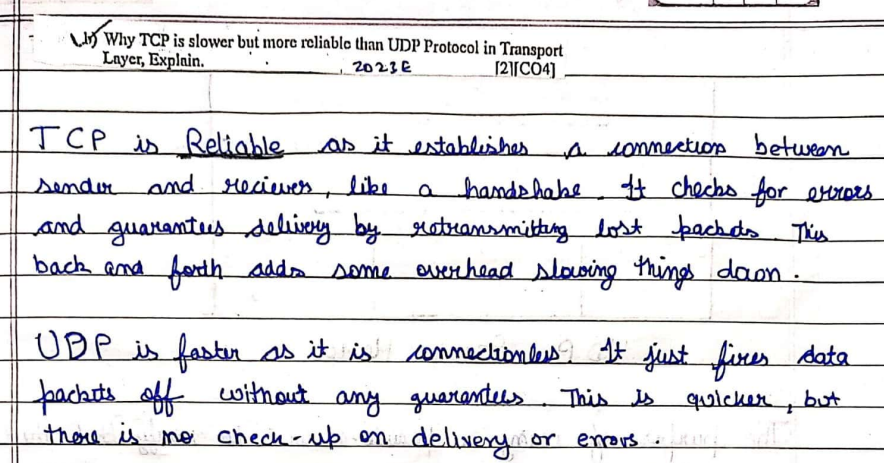 b) Why TCP is slower but more reliable than UDP Protocol in Transport
Layer, Explain. 2023E [2][CO4]
TCP is Reliable as it establishes a connection between
sender and reciever, like a handshake. It checks for errors
and guarantees delivery by retransmitting lost packets This
back and forth adds some overhead slowing things down.
UDP is faster as it is connectionless. It just fires data
packets off without any guarantees. This is quicker, but
there is no check-up on delivery or errors.